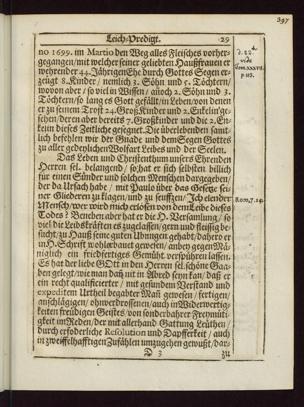 397
Leich-Predigt. 29
no 1699. im Martio den Weg alles Fleisches vorher-
gegangen/ mit welcher seiner geliebten Haußfrauen er
wehrender 44. Jährigen Ehe durch Gottes Segen er-
zeugt 8. Kinder/ nemlich 3. Söhn und 5. Töchtern/
wovon aber/ so viel in Wissen/ annoch 2. Söhn und 3.
Töchtern/ so lang es Gott gefällt/ in Leben/ von denen
er zu seinem Trost 24. Groß-Kinder und 2. Enkelin ge-
sehen/ deren aber bereits 7. Großkinder und die 2. En-
kelin dieses Zeitliche gesegnet. Die überlebenden samt-
lich befehlen wir der Gnade und dem Segen Gottes
zu aller gedeylichen Wolfart Leibes und der Seelen.
Das Leben und Christenthum unsers Ehrenden
Herren sel. belangend/ so hat er sich selbsten billich
für einen Sünder und solchen Menschen dargegeben/
der da Ursach habe/ mit Paulo über das Gesetz sei-
ner Gliederen zu klagen/ und zu seufftzen/ Ich elender
Mensch/ wer wird mich erlösen von dem Leibe dieses
Todes? Beneben aber hat er die H. Versamlung/ so
viel die Leibskräfften es zugelassen/ gern und fleissig be-
sucht; zu Hauß seine guten Ubungen gehabt/ dahero er
in H. Schrifft wohl erbauet gewesen/ anbey gegen Mä-
niglich ein friedfertiges Gemüht verspühren lassen.
Es hat der liebe GOtt in den Herren sel. schöne Ga-
ben gelegt/ wie man dañ nit in Abred seyn kan/ daß er
ein recht qualificierter/ mit gesundem Verstand und
expeditem Urtheil begabter Mañ gewesen/ fertigen/
anschlägigen/ ohnverdrossenen/ auch in Widerwertig-
keiten freudigen Geistes/ von sonderbahrer Freymütig-
keit im Reden/ der mit allerhand Gattung Leuthen/
durch erforderliche Resolution und Dapfferkeit/ auch
in zweiffelhafftigen Zufählen umzugehen gewußt/ dar-
D 3 zu
vide
p 115.
Rom. 7. 24.